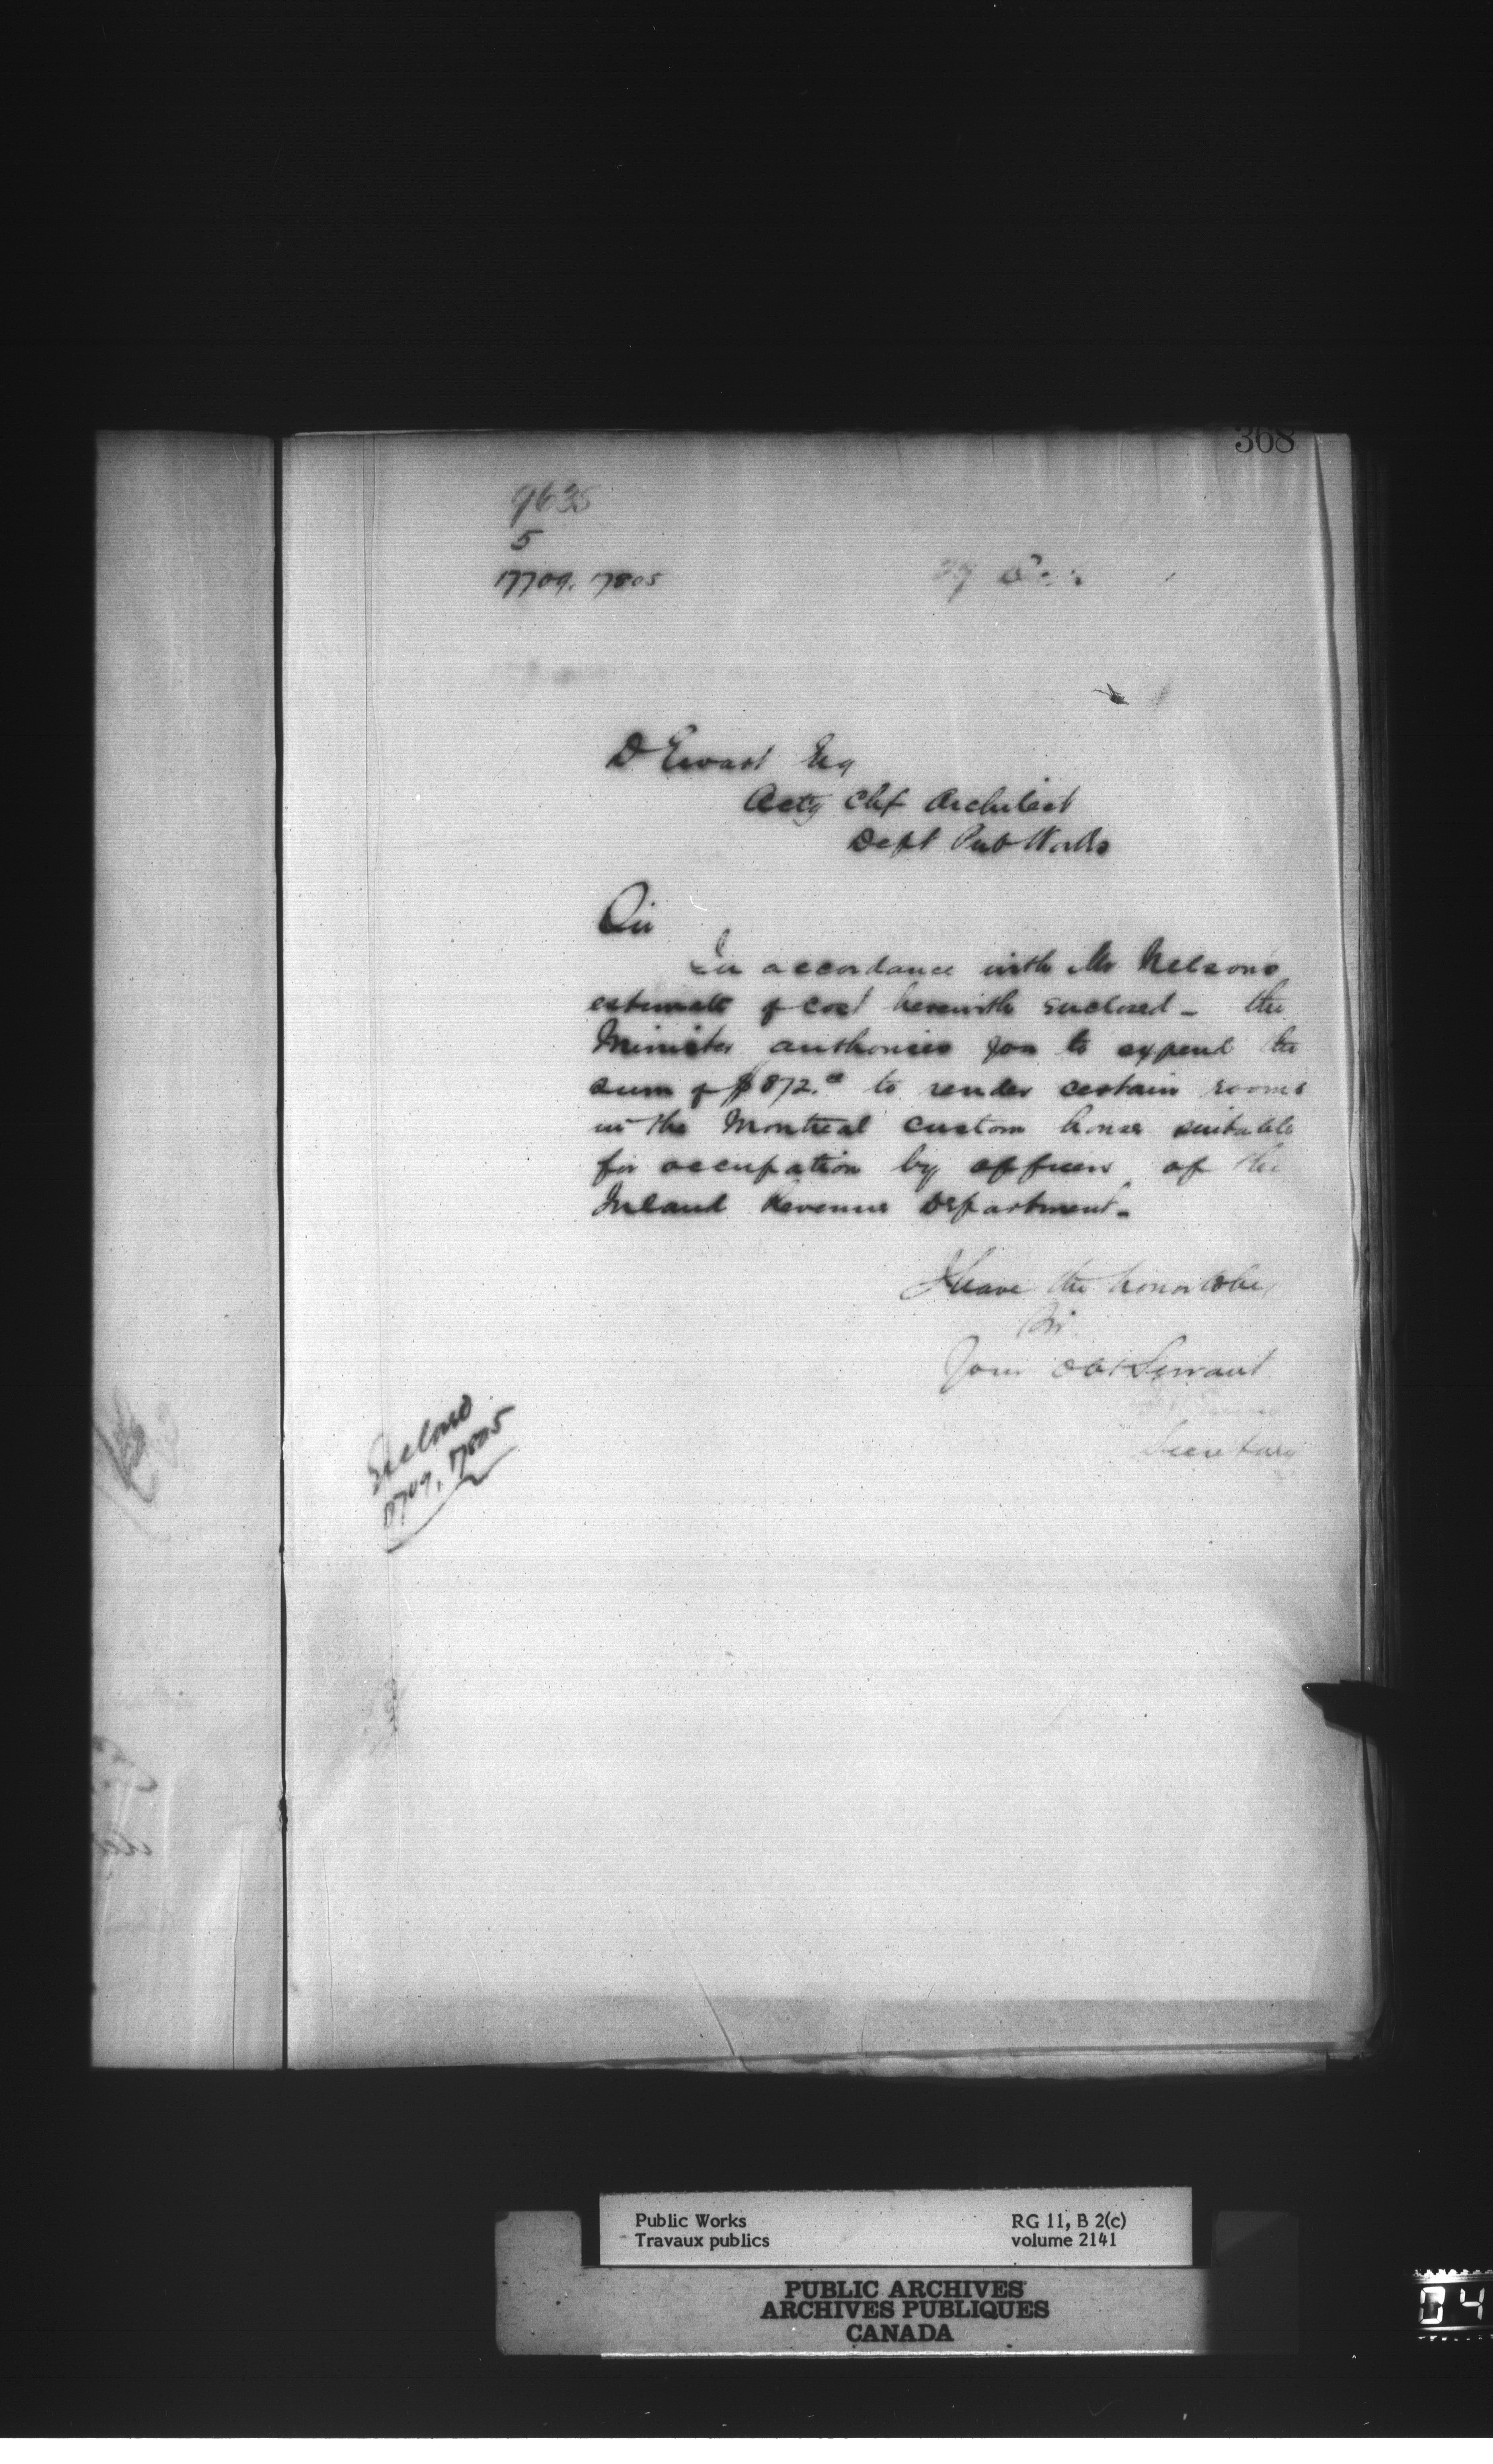 368
9635
5
17709. 17805
D Ewart Esq
Actg Chf Architect
Dept Pub Works
Sir
In accordance with Mr Nelson's
estimate of cost herewith enclosed - the
Minister authorises you to expend the
sum of $872.00 to render certain rooms
in the Montreal custom house suitable
for occupation by officers of the
Inland Revenue Department.
I have the honor to be,
Sir
Your Obt Servant
Secretary
Enclons
17709, 17805
Public Works
Travaux publics
RG 11, B 2(c)
volume 2141
PUBLIC ARCHIVES
ARCHIVES PUBLIQUES
CANADA
04